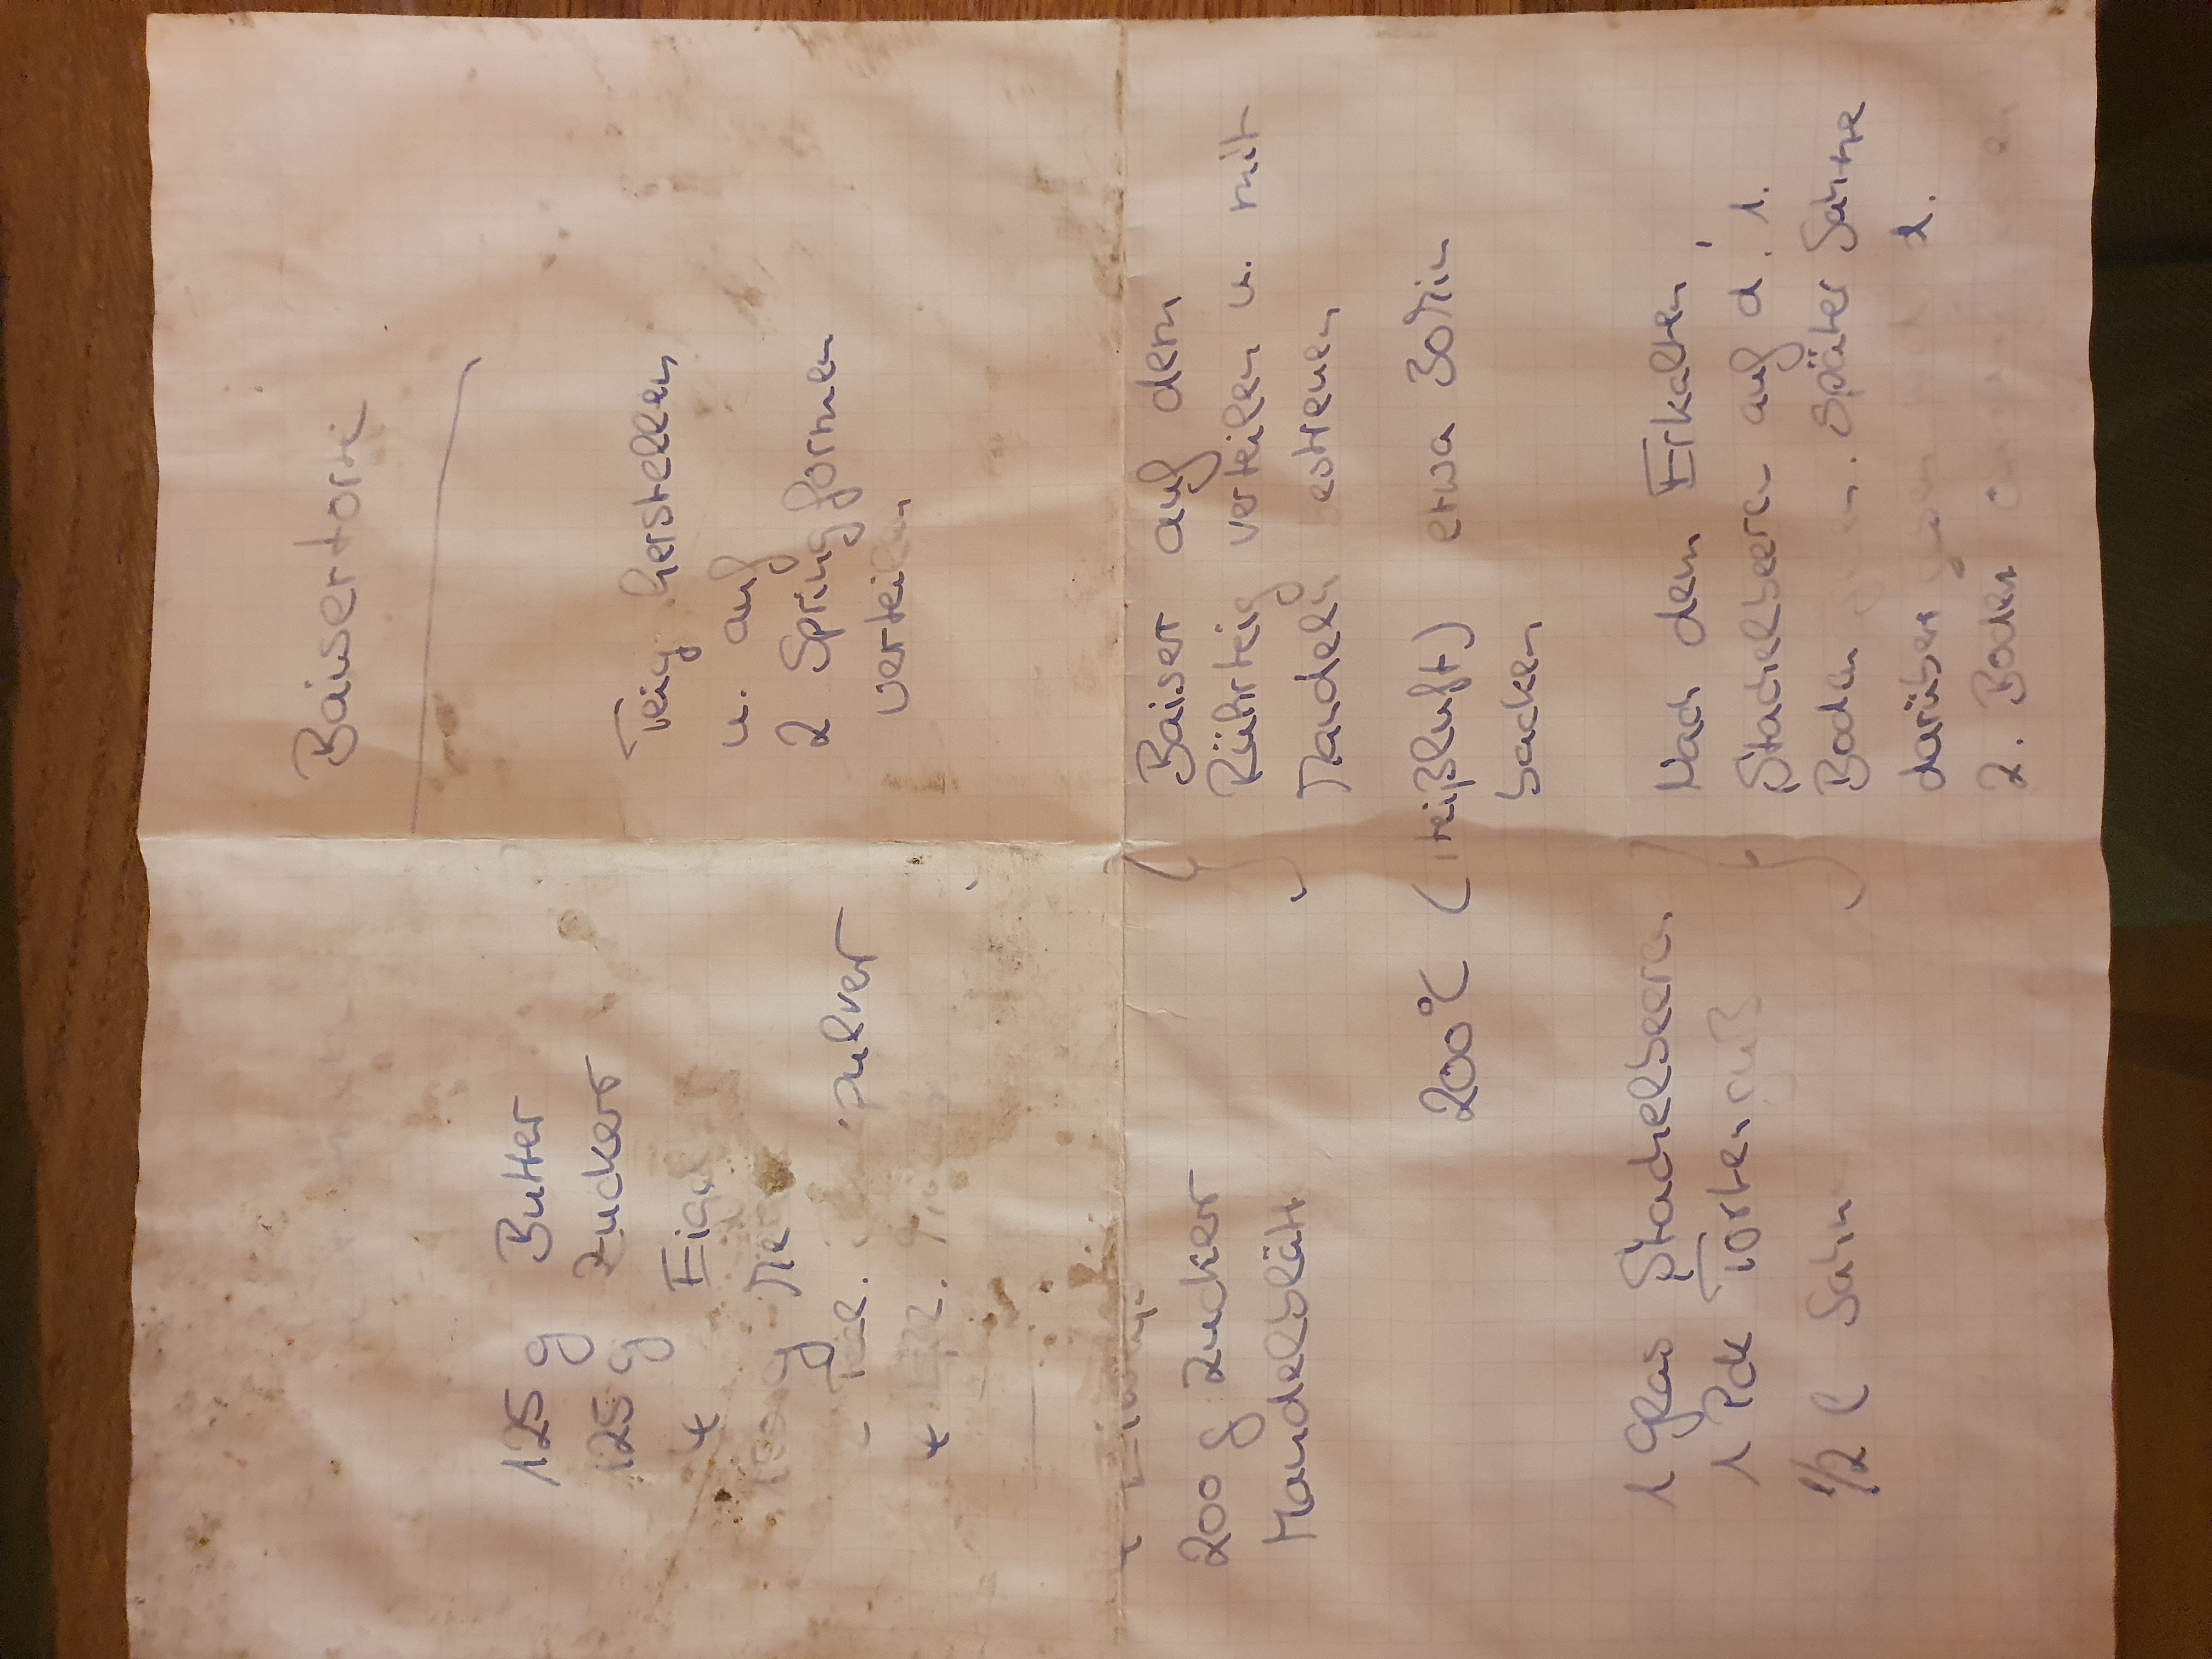 Baisertorte
125 g Butter
125 g Zucker
4
Teig herstellen
u. auf
2 Springformen
verteilen
pulver
4
200 g Zucker
Mandelblätt
Baiser auf dem
Rührteig verteilen u. mit
Mandeln bestreuen
200°C (Heißluft) etwa 30 Min
backen
1 Glas Stachelbeeren
1 Pck Tortenguß
1/2 l Sahn
Nach dem Erkalten
Stachelbeeren auf d. 1.
Boden später Sahne
darüber
2. Boden